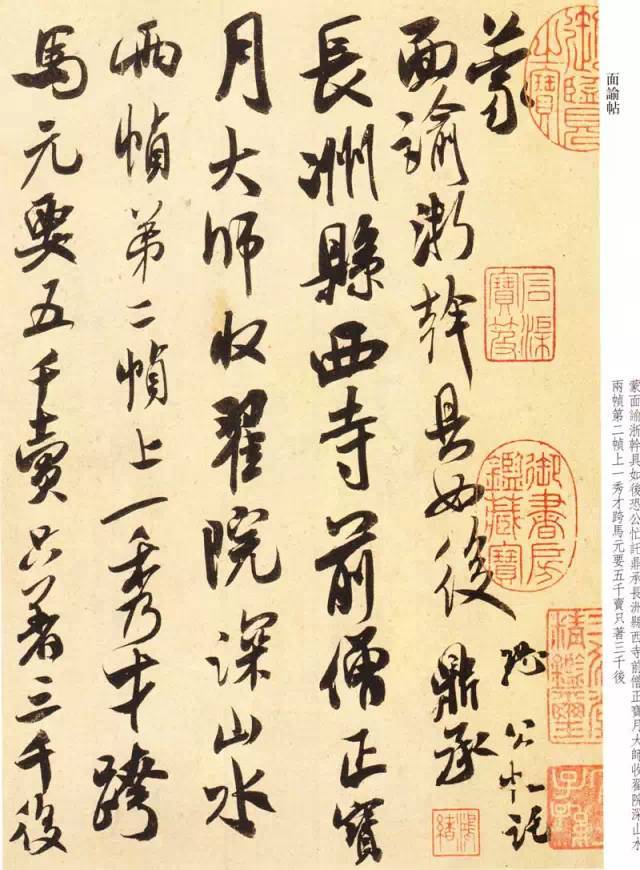 面諭帖
蒙面諭浙幹具如後恐公忙託鼎承長洲縣西寺前僧正寶月大師收翟院深山水
兩幀第二幀上一秀才跨馬元要五千賣只著三千後
蒙
面諭浙幹具如後
恐公忙託
鼎承
長洲縣西寺前僧正寶
月大師收翟院深山水
兩幀第二幀上一秀才跨
馬元要五千賣只著三千後
石渠寶笈
御書房鑑藏寶